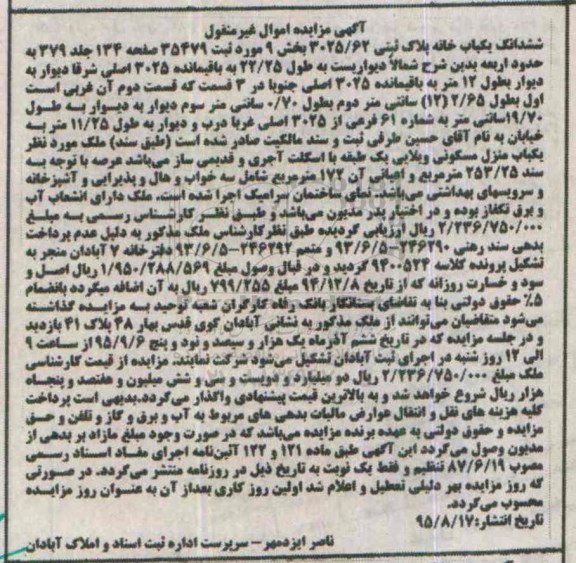 آگهی مزایده اموال غیرمنقول
ششدانگ یکباب خانه پلاک ثبتی ۳۰۲۵/۶۲ بخش ۹ مورد ثبت ۳۵۴۷۹ صفحه ۱۳۴ جلد ۳۷۹ به
حدود اربعه بدین شرح شمالا دیواریست به طول ۲۲/۲۵ به باقیمانده ۳۰۲۵ اصلی شرقا دیوار به
دیوار بطول ۱۲ متر به باقیمانده ۳۰۲۵ اصلی جنوبا در ۳ قسمت که قسمت دوم آن غربی است
اول بطول ۲/۶۵ (۱۲) سانتی متر دوم بطول ۰/۷۰ سانتی متر سوم دیوار به دیوار به طول
۱۹/۷۰سانتی متر به شماره ۶۱ فرعی از ۳۰۲۵ اصلی غربا درب و دیوار به طول ۱۱/۲۵ متر به
خیابان به نام آقای حسین طرفی ثبت و سند مالکیت صادر شده است (طبق سند) ملک مورد نظر
یکباب منزل مسکونی ویلایی یک طبقه با اسکلت آجری و قدیمی ساز میباشد عرصه با توجه به
سند ۲۵۳/۲۵ مترمربع و اعیانی آن ۱۷۲ مترمربع شامل سه خواب و هال و پذیرایی و آشپزخانه
و سرویسهای بهداشتی میباشد نمای ساختمان سرامیک اجرا شده است. ملک دارای انشعاب آب
و برق تکفاز بوده و در اختیار پدر مدیون میباشد و طبق نظر کارشناس رسمی به مبلغ
۲/۲۳۶/۷۵۰/۰۰۰ ریال ارزیابی گردیده طبق نظرکارشناس ملک مذکور به دلیل عدم پرداخت
بدهی سند رهنی ۲۴۶۲۹۰-۹۳/۶/۵ و متمم ۲۴۶۲۹۲-۹۳/۶/۵ دفترخانه ۷ آبادان منجر به
تشکیل پرونده کلاسه ۹۴۰۰۵۲۴ گردید و در قبال وصول مبلغ ۱/۹۵۰/۲۸۸/۵۶۹ ریال اصل و
سود و خسارت روزانه که از تاریخ ۹۴/۱۲/۸ مبلغ ۷۹۹/۲۵۵ ریال به آن اضافه میگردد بانضمام
۵٪ حقوق دولتی بنا به تقاضای بستانکار بانک رفاه کارگران شعبه توحید به مزایده گذاشته
می‌شود متقاضیان می‌توانند از ملک مذکور به نشانی آبادان کوی قدس بهار ۴۸ پلاک ۴۱ بازدید
و در جلسه مزایده که در تاریخ ششم آذرماه یک هزار و سیصد و نود و پنج ۹۵/۹/۶ از ساعت ۹
الی ۱۲ روز شنبه در اجرای ثبت آبادان تشکیل می‌شود شرکت نمایند. مزایده از قیمت کارشناسی
ملک مبلغ ۲/۲۳۶/۷۵۰/۰۰۰ ریال دو میلیارد و دویست و سی و شش میلیون و هفتصد و پنجاه
هزار ریال شروع خواهد شد و به بالاترین قیمت پیشنهادی واگذار می‌گردد.بدیهی است پرداخت
کلیه هزینه های نقل و انتقال عوارض مالیات بدهی های مربوط به آب و برق و گاز و تلفن و حق
مزایده و حقوق دولتی به عهده برنده مزایده میباشد که در صورت وجود مبلغ مازاد بر بدهی از
مدیون وصول می‌گردد این آگهی طبق ماده ۱۲۱ و ۱۲۲ آئین‌نامه اجرای مفاد اسناد رسمی
مصوب ۸۷/۶/۱۹ تنظیم و فقط یک نوبت به تاریخ ذیل در روزنامه منتشر می‌گردد. در صورتی
که روز مزایده بهر دلیلی تعطیل و اعلام شد اولین روز کاری بعداز آن به عنوان روز مزایده
محسوب می‌گردد.
تاریخ انتشار:۹۵/۸/۱۷
ناصر ایزدمهر – سرپرست اداره ثبت اسناد و املاک آبادان